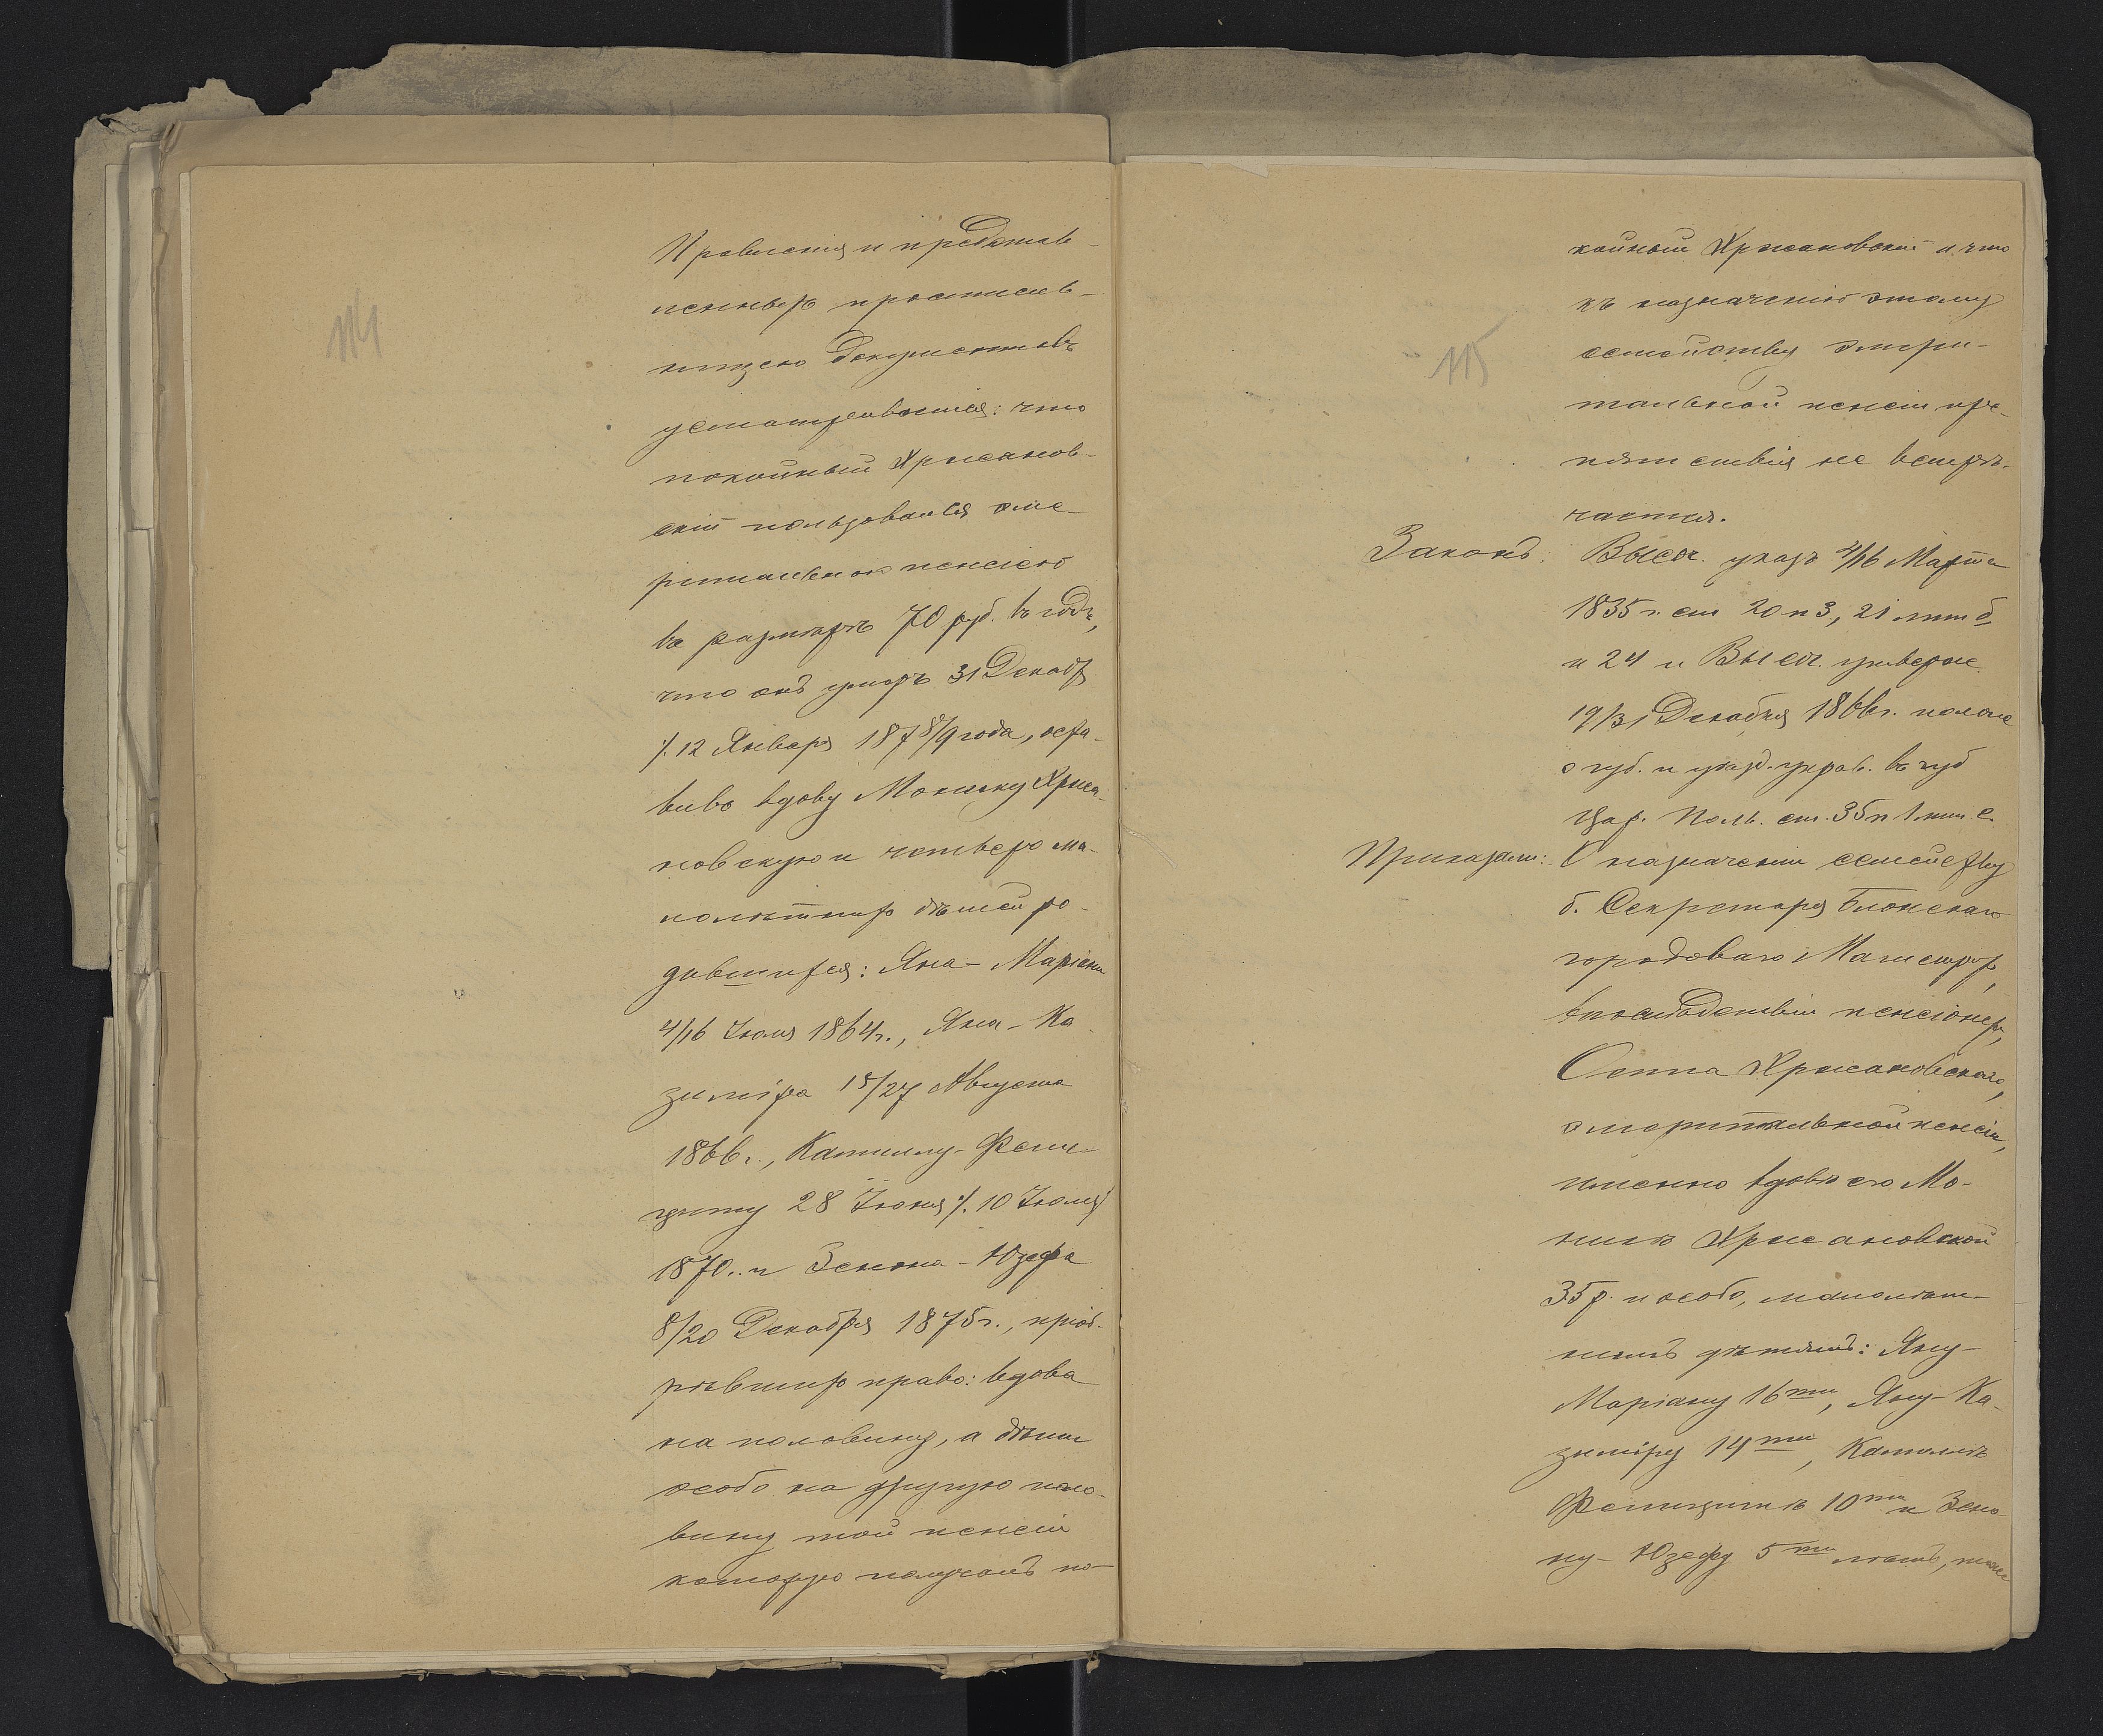 114
Правленія и представ-
ленныхъ проситель-
ницею документовъ
усматривается: что
покойный Хржанов-
скій пользовался эме-
ритальною пенсіею
въ размѣрѣ 70 руб. въ годъ,
что онъ умеръ 31 Декабр
/. 12 Января 1878/9 года, оста-
вивъ вдову Монику Хржа-
новскую и четверо ма-
лолѣтнихъ дѣтей ро-
дившихся: Яна-Маріана
4/16 Іюля 1864 г., Яна-Ка-
зиміра 15/27 Августа
1866 г., Камиллу-Фели-
циту 28 Іюня /. 10 Іюля
1870 г. и Зенона-Юзефа
8/20 Декабря 1875 г., пріоб-
рѣвшихъ право: вдова
на половину, а дѣти
особо на другую поло-
вину той пенсіи
которую получалъ по-
115
койный Хржановскій и что
къ назначенію этому
семейству эмери-
тальной пенсіи пре-
пятствія не встрѣ-
чается.
Законъ: Высоч. указъ 4/16 Марта
1835 г. ст 20 п 3, 21 лит б
и 24 и Высоч. утвержд.
19/31 Декабря 1866 г. полож
о губ. и уѣзд. управ. въ губ
Цар. Поль. ст. 35 п 1 лит е.
Приказали: О назначеніи семейству
б. Секретаря Блонскаго
городоваго Магистрата,
впослѣдствіи пенсіонера,
Осипа Хржановскаго,
эмеритальной пенсіи,
именно вдовѣ его Мо-
никѣ Хржановской
35 р. и особо, малолѣт-
нимъ дѣтямъ: Яну-
Маріану 16ти, Яну-Ка-
зиміру 14ти, Камиллѣ
Фелицитѣ 10ти и Зено-
ну-Юзефу 5ти лѣтъ, также